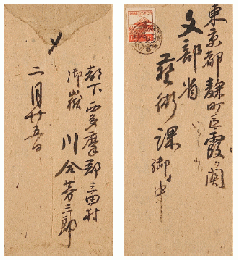 東京都麹町区霞ヶ関
文部省
藝術課御中
都下西多摩郡三田村
御嶽
川合芳三郎
二月廿五日